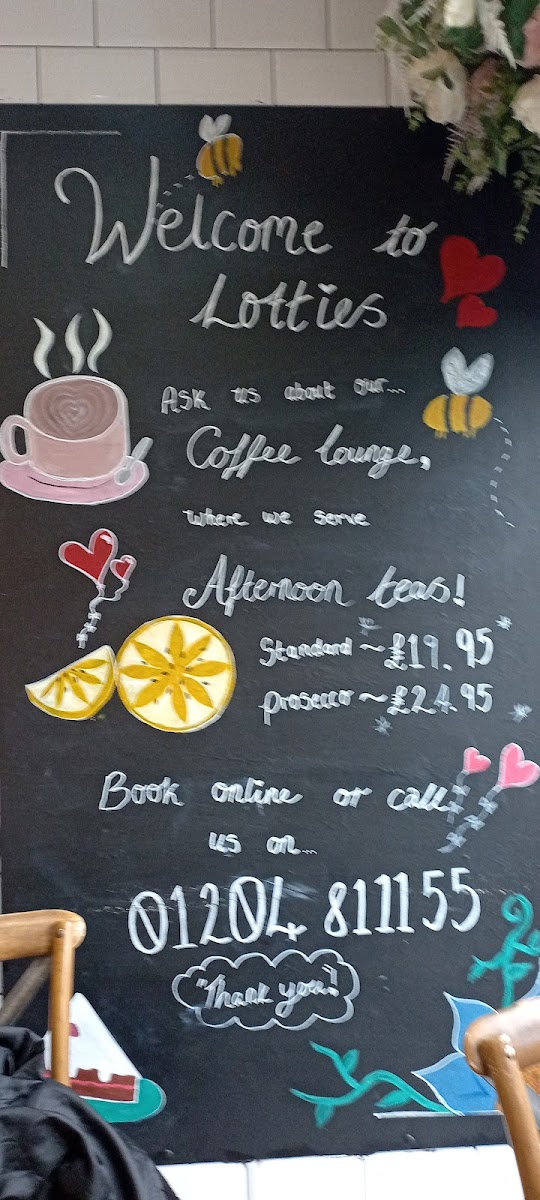 Welcome to
Lotties
Ask us about our...
Coffee lounge,
where we serve
Afternoon teas!
Standard ~ £19.95
prosecco ~ £24.95
Book online or call
us on...
01204 811155
"Thank you!"